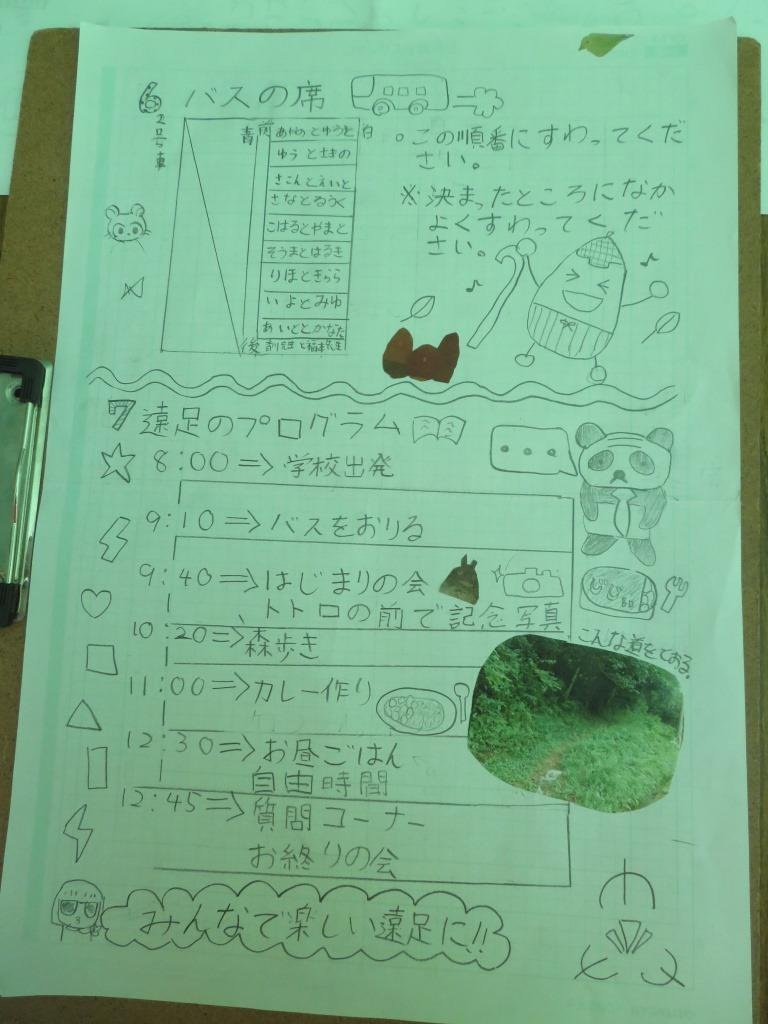 6 バスの席
2号車
青 前 白
あやのとゆうと
ゆうとさきの
さこんとえいと
さなとるうく
こはるとやまと
そうまとはるき
りほときらら
いよとみゆ
あいととかなた
後
先生と福本先生
。この順番にすわってくだ
さい。
※決まったところになか
よくすわってくだ
さい。
7 遠足のプログラム
8:00⇒学校出発
9:10⇒バスをおりる
9:40⇒はじまりの会
トトロの前で記念写真
10:20⇒森歩き
こんな道をとおる。
11:00⇒カレー作り
12:30⇒お昼ごはん
自由時間
12:45⇒質問コーナー
お終りの会
みんなで楽しい遠足に!!